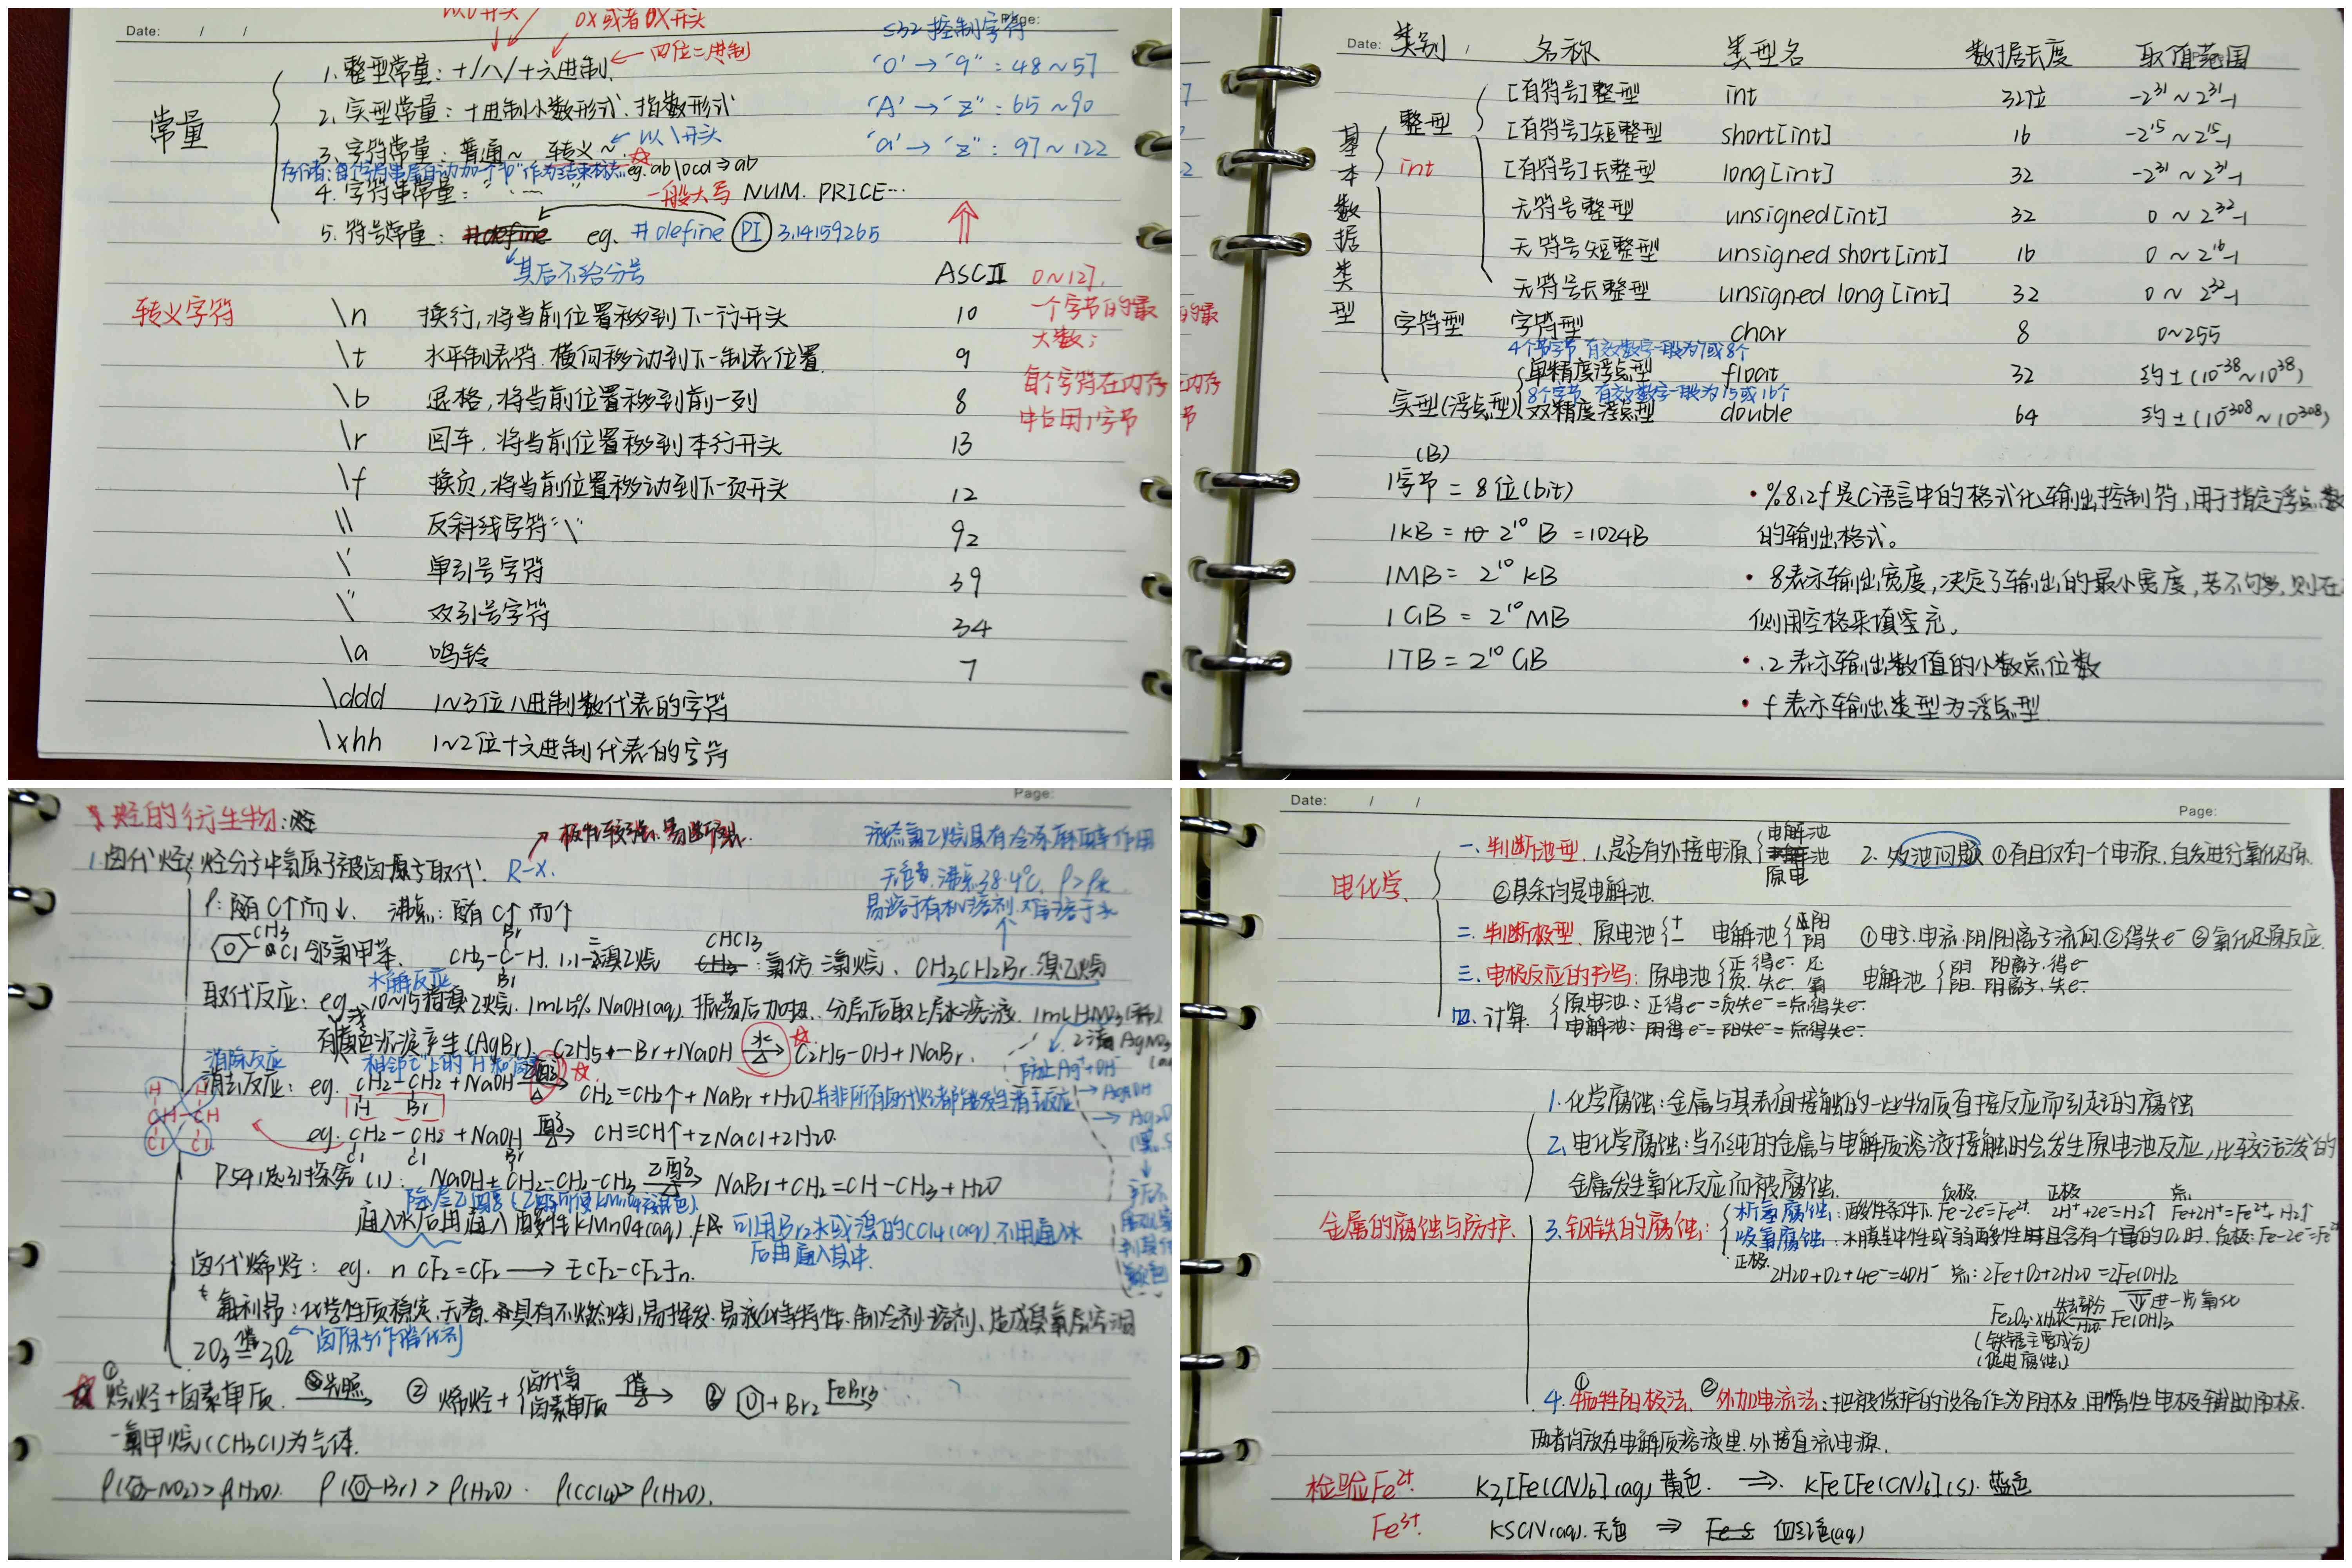 Date: / /
Page:
0X或者0x开头
532控制字符
四位二进制
常量
1.整型常量：十/八/十六进制.
'0'→'9'：48~57
2.实型常量：十进制小数形式.指数形式
'A'→'Z'：65~90
3.字符常量：普通~ 转义~ 以\开头
'a'→'z'：97~122
存储：每个字符串尾自动加一个'\0'作为结束标志 eg.ab\0cd⇒ab
4.字符串常量：" ..... "
一般大写 NUM. PRICE…
5.符号常量： eg. #define PI 3.14159265
其后不给分号
转义字符
ASCII 0~127.
\n 换行,将当前位置移到下一行开头 10
一个字节的最大数；
\t 水平制表符.横向移动到下一制表位置. 9
每个字符在内存中占用1字节
\b 退格,将当前位置移到前一列 8
\r 回车.将当前位置移到本行开头 13
\f 换页,将当前位置移动到下一页开头 12
\\ 反斜线字符"\" 92
\' 单引号字符 39
\" 双引号字符 34
\a 鸣铃 7
\ddd 1~3位八进制数代表的字符
\xhh 1~2位十六进制代表的字符
Date: 类别 / 名称 类型名 数据长度 取值范围
基本数据类型
整型 int
[有符号]整型 int 32位 -2³¹~2³¹-1
[有符号]短整型 short[int] 16 -2¹⁵~2¹⁵-1
[有符号]长整型 long[int] 32 -2³¹~2³¹-1
无符号整型 unsigned[int] 32 0~2³²-1
无符号短整型 unsigned short[int] 16 0~2¹⁶-1
无符号长整型 unsigned long[int] 32 0~2³²-1
字符型 字符型 char 8 0~255
4个字节 有效数字一般为7或8个
单精度浮点型 float 32 约±(10⁻³⁸~10³⁸)
8个字节 有效数字一般为15或16个
实型(浮点型) 双精度浮点型 double 64 约±(10⁻³⁰⁸~10³⁰⁸)
(B)
1字节=8位(bit)
1KB= 2¹⁰B=1024B
1MB=2¹⁰KB
1GB=2¹⁰MB
1TB=2¹⁰GB
•%8.2f是C语言中的格式化输出控制符,用于指定浮点数
的输出格式。
•8表示输出宽度,决定了输出的最小宽度,若不够,则在
侧用空格来填充。
•.2表示输出数值的小数点位数
•f表示输出类型为浮点型
Page:
烃的衍生物:
极性较强.易断裂.
1.卤代烃:烃分子中氢原子被卤原子取代. R-X.
液态氯乙烷具有冷冻麻醉作用
无色,沸点38.4℃, ρ>ρ水
易溶于有机溶剂.难溶于水
ρ:随C↑而↓. 沸点:随C↑而↑
CH3 Cl 邻氯甲苯. CH3-C-H Br Br 1,1-二溴乙烷 CHCl3:氯仿 三氯烷. CH3CH2Br.溴乙烷
水解反应
取代反应：eg. 10~15滴溴乙烷. 1mL5%NaOH(aq) 振荡后加热.分层后取上层水溶液. 1mLHNO3(稀)
2滴AgNO3
有浅黄色沉淀产生(AgBr). C2H5-Br+NaOH 水△→ C2H5-OH+NaBr.
防止Ag⁺+OH⁻
→AgOH
→Ag2O
消除反应
相邻C上的H和卤
消去反应：eg. CH2-CH2+NaOH 醇△→ CH2=CH2↑+NaBr+H2O 并非所有卤代烃都能发生消去反应
H Br
eg. CH2-CH2+NaOH 醇→ CH≡CH↑+2NaCl+2H2O.
Cl Cl
H H
CH-CH
Cl Cl
P54 (1): NaOH+CH2-CH2-CH3 乙醇△→ NaBr+CH2=CH-CH3+H2O
Br
通入水后再通入酸性KMnO4(aq). 可用Br2水或溴的CCl4(aq).不用通水
后再通入其中.
卤代烯烃：eg. n CF2=CF2→ [CF2-CF2]n.
氟利昂:化学性质稳定.无毒.具有不燃烧,易挥发.易液化等特性.制冷剂.溶剂.造成臭氧层空洞
2O3 催= 3O2 ←卤原子作催化剂
①烷烃+卤素单质 光照→ ②烯烃+{卤代氢 卤素单质 催→ ③ +Br2 FeBr3→
一氯甲烷(CH3Cl)为气体.
ρ( -NO2)>ρ(H2O). ρ( -Br)>ρ(H2O). ρ(CCl4)>ρ(H2O).
Date: / /
Page:
电化学
一.判断池型. 1.是否有外接电源{电解池 原电池 2.多池问题 ①有且仅有一个电源.自发进行氧化还原.
②其余均是电解池.
二.判断极型. 原电池{+ - 电解池{阳 阴 ①电子.电流.阴/阳离子流向.②得失e⁻ ③氧化还原反应.
三.电极反应的书写：原电池{正.得e⁻.还 负.失e⁻.氧 电解池{阴 阳离子.得e⁻ 阳.阴离子.失e⁻.
四.计算.{原电池：正得e⁻=负失e⁻=总得失e⁻.
电解池：阴得e⁻=阳失e⁻=总得失e⁻.
金属的腐蚀与防护.
1.化学腐蚀:金属与其表面接触的一些物质直接反应而引起的腐蚀
2.电化学腐蚀:当不纯的金属与电解质溶液接触时会发生原电池反应,比较活泼的
金属发生氧化反应而被腐蚀.
负极. 正极 总.
3.钢铁的腐蚀:{析氢腐蚀:酸性条件下. Fe-2e⁻=Fe²⁺. 2H⁺+2e⁻=H2↑ Fe+2H⁺=Fe²⁺+H2↑
吸氧腐蚀.水膜呈中性或弱酸性并且含有一个量的O2时.负极:Fe-2e⁻=Fe²⁺
正极. 2H2O+O2+4e⁻=4OH⁻ 总:2Fe+O2+2H2O=2Fe(OH)2
进一步氧化
Fe2O3·xH2O ←失去部分H2O Fe(OH)3
(铁锈主要成分)
(促进腐蚀)
4.①牺牲阳极法. ②外加电流法:把被保护的设备作为阴极.用惰性电极辅助阳极.
两者均放在电解质溶液里.外接直流电源.
检验Fe²⁺ K3[Fe(CN)6](aq) 黄色. ⇒. KFe[Fe(CN)6](s).蓝色
Fe³⁺. KSCN(aq).无色 ⇒ 血红色(aq)